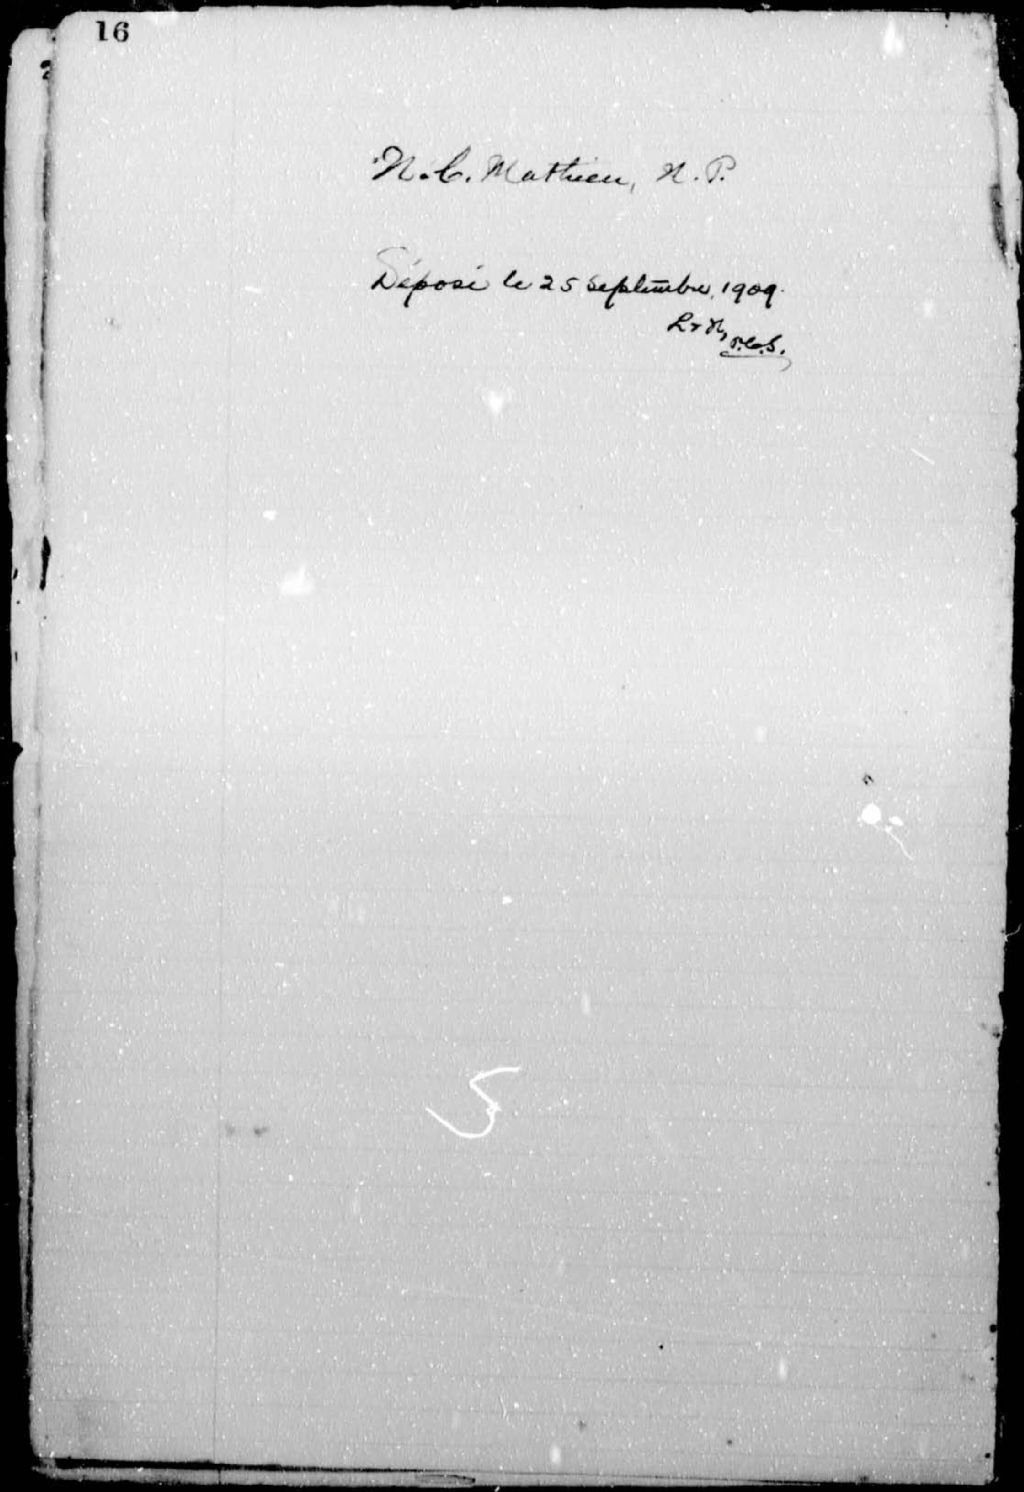 16
N. C. Mathieu, N. P.
Déposé le 25 Septembre, 1909.
P.C.S.